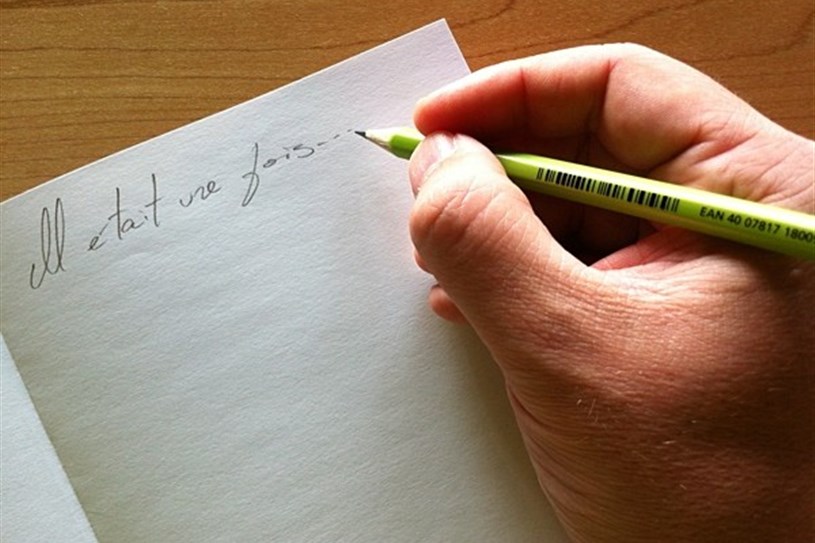 Il était une fois...
EAN 40 07817 1800